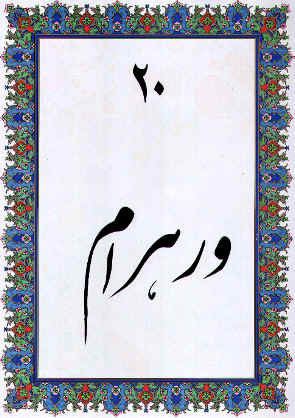 ۲۰
ورهرام